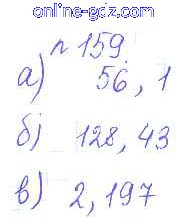 online-gdz.com
n 159.
а) 56, 1
б) 128, 43
в) 2, 197